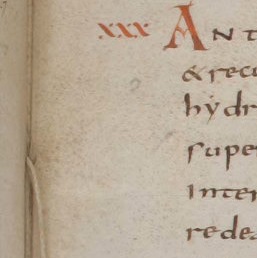 xxx ANT
& reco
hydr
supe
inter
rede